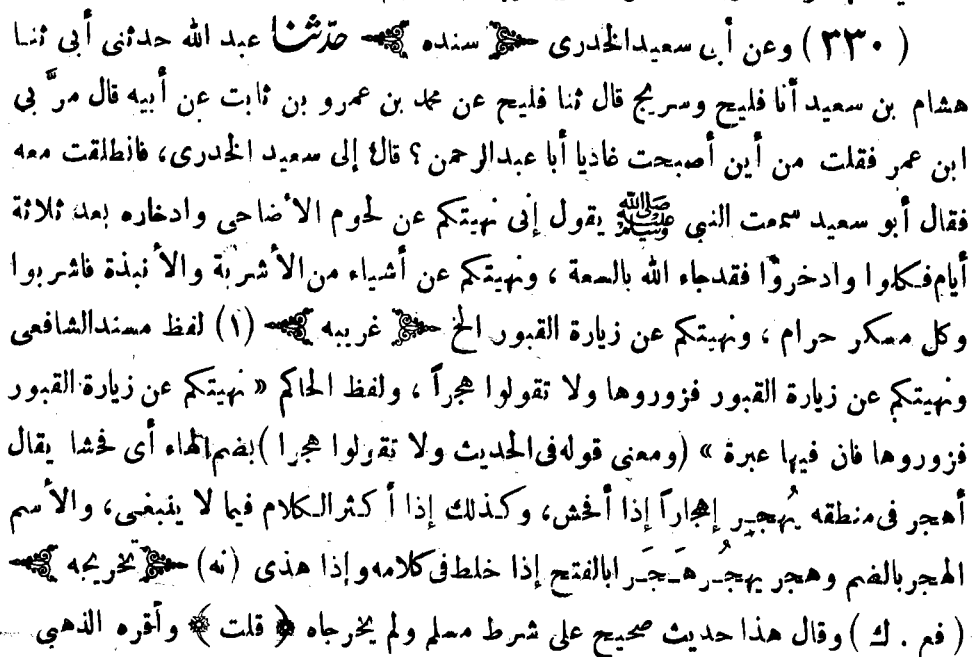 ( ٣٣٠ ) وعن أبى سعيد الخدرى ﴿ سنده ﴾ حدّثنا عبد الله حدثنى أبى ثنا
هشام بن سعيد أنا فليح وسريج قال ثنا فليح عن محمد بن عمرو بن ثابت عن أبيه قال مرَّ بى
ابن عمر فقلت من أين أصبحت غاديا أبا عبد الرحمن ؟ قال إلى سعيد الخدرى، فانطلقت معه
فقال أبو سعيد سمعت النبى ﷺ يقول إنى نهيتكم عن لحوم الأضاحى وادخاره بعد ثلاثة
أيام فكلوا وادخروا فقد جاء الله بالسعة ، ونهيتكم عن أشياء من الأشربة والأنبذة فاشربوا
وكل مسكر حرام ، ونهيتكم عن زيارة القبور الخ ﴿ غريبه ﴾ (١) لفظ مسند الشافعى
ونهيتكم عن زيارة القبور فزوروها ولا تقولوا هجراً ، ولفظ الحاكم « نهيتكم عن زيارة القبور
فزوروها فان فيها عبرة » (ومعنى قوله فى الحديث ولا تقولوا هجرا ) بضم الهاء أى فحشا يقال
أهجر فى منطقه يُهجِر إهجاراً إذا أفحش، وكذلك إذا أكثر الكلام فيما لا ينبغى، والأسم
الهجر بالضم وهجر يهجُر هَجَرا بالفتح إذا خلط فى كلامه وإذا هذى (نه) ﴿ تخريجه ﴾
( فع . ك ) وقال هذا حديث صحيح على شرط مسلم ولم يخرجاه ﴿ قلت ﴾ وأقره الذهبى